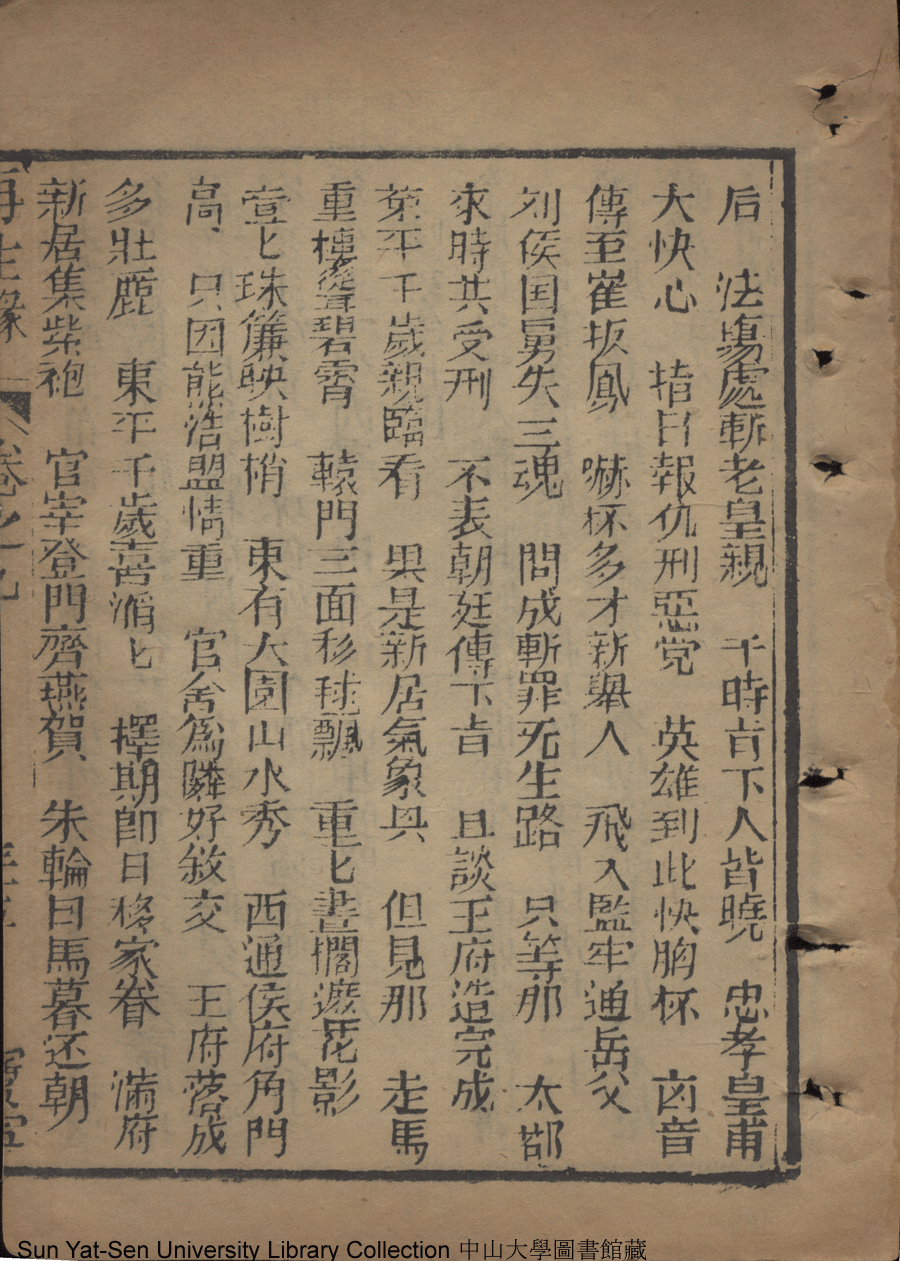 后　法塲處斬老皇親　千時旨下人皆曉　忠孝皇甫
大快心　指日報仇刑惡党　英雄到此快胸杯　凶音
傳至崔扳鳳　嚇杯多才新舉人　飛入監牢通岳父
刘侯国舅失三魂　問成斬罪死生路　只等那　太郡
來時共受刑　不表朝廷傳下旨　且談王府造完成
東平千歲親臨看　果是新居氣象具　但見那　走馬
重樓聳碧霄　轅門三面移毬飄　重匕畫擱遮花影
壹匕珠簾映樹梢　東有大園山水秀　西通侯府角門
高　只因熊浩盟情重　官舍為隣好敘交　王府落成
多壯麗　東平千歲喜滔匕　擇期即日移家眷　滿府
新居集紫袍　官宰登門齊燕賀　朱輪日馬暮还朝
再生緣　卷之九
Sun Yat-Sen University Library Collection 中山大學圖書館藏